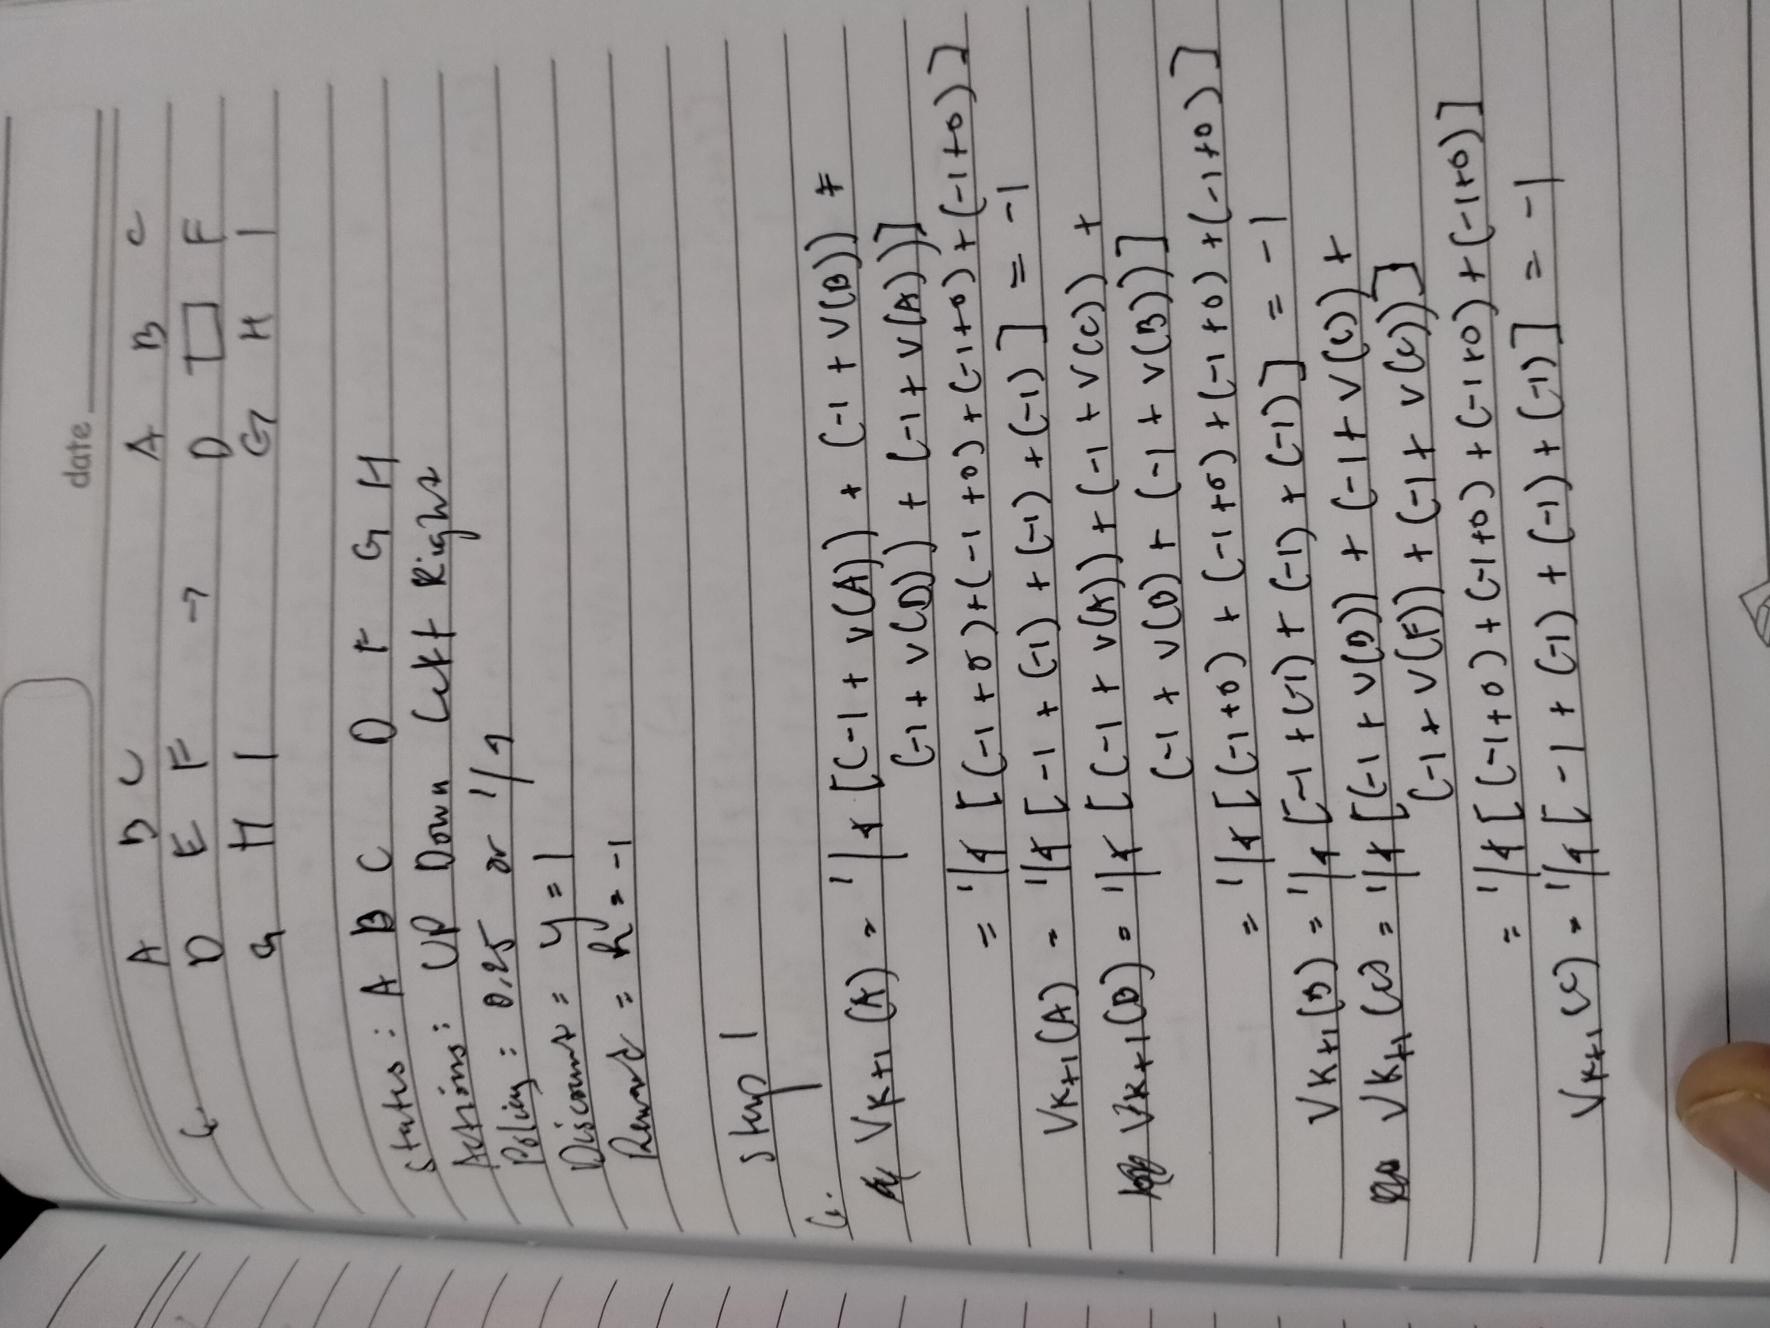 date
A B C A B C
6. D E F → D □ F
G H I G H I
States: A B C D F G H
Actions: UP Down Left Right
Policy: 0.25 or 1/4
Discount = γ = 1
Reward = R = -1
Step 1
6.
Vk+1 (A) = 1/4 [(-1 + v(A)) + (-1 + V(B)) +
(-1 + v(D)) + (-1 + v(A))]
= 1/4 [(-1+0)+(-1+0)+(-1+0)+(-1+0)]
Vk+1(A) = 1/4 [-1 + (-1) + (-1) + (-1)] = -1
Vk+1(B) = 1/4 [(-1 + v(A)) + (-1 + v(C)) +
(-1 + v(B) + (-1 + v(B))]
= 1/4 [(-1+0) + (-1+0) + (-1+0) + (-1+0)]
Vk+1(B) = 1/4 [-1 + (-1) + (-1) + (-1)] = -1
Vk+1 (C) = 1/4 [(-1 + v(B)) + (-1 + v(C)) +
(-1 + V(F)) + (-1 + v(C))]
= 1/4 [(-1+0) + (-1+0) + (-1+0) + (-1+0)]
Vk+1 (C) = 1/4 [-1 + (-1) + (-1) + (-1)] = -1